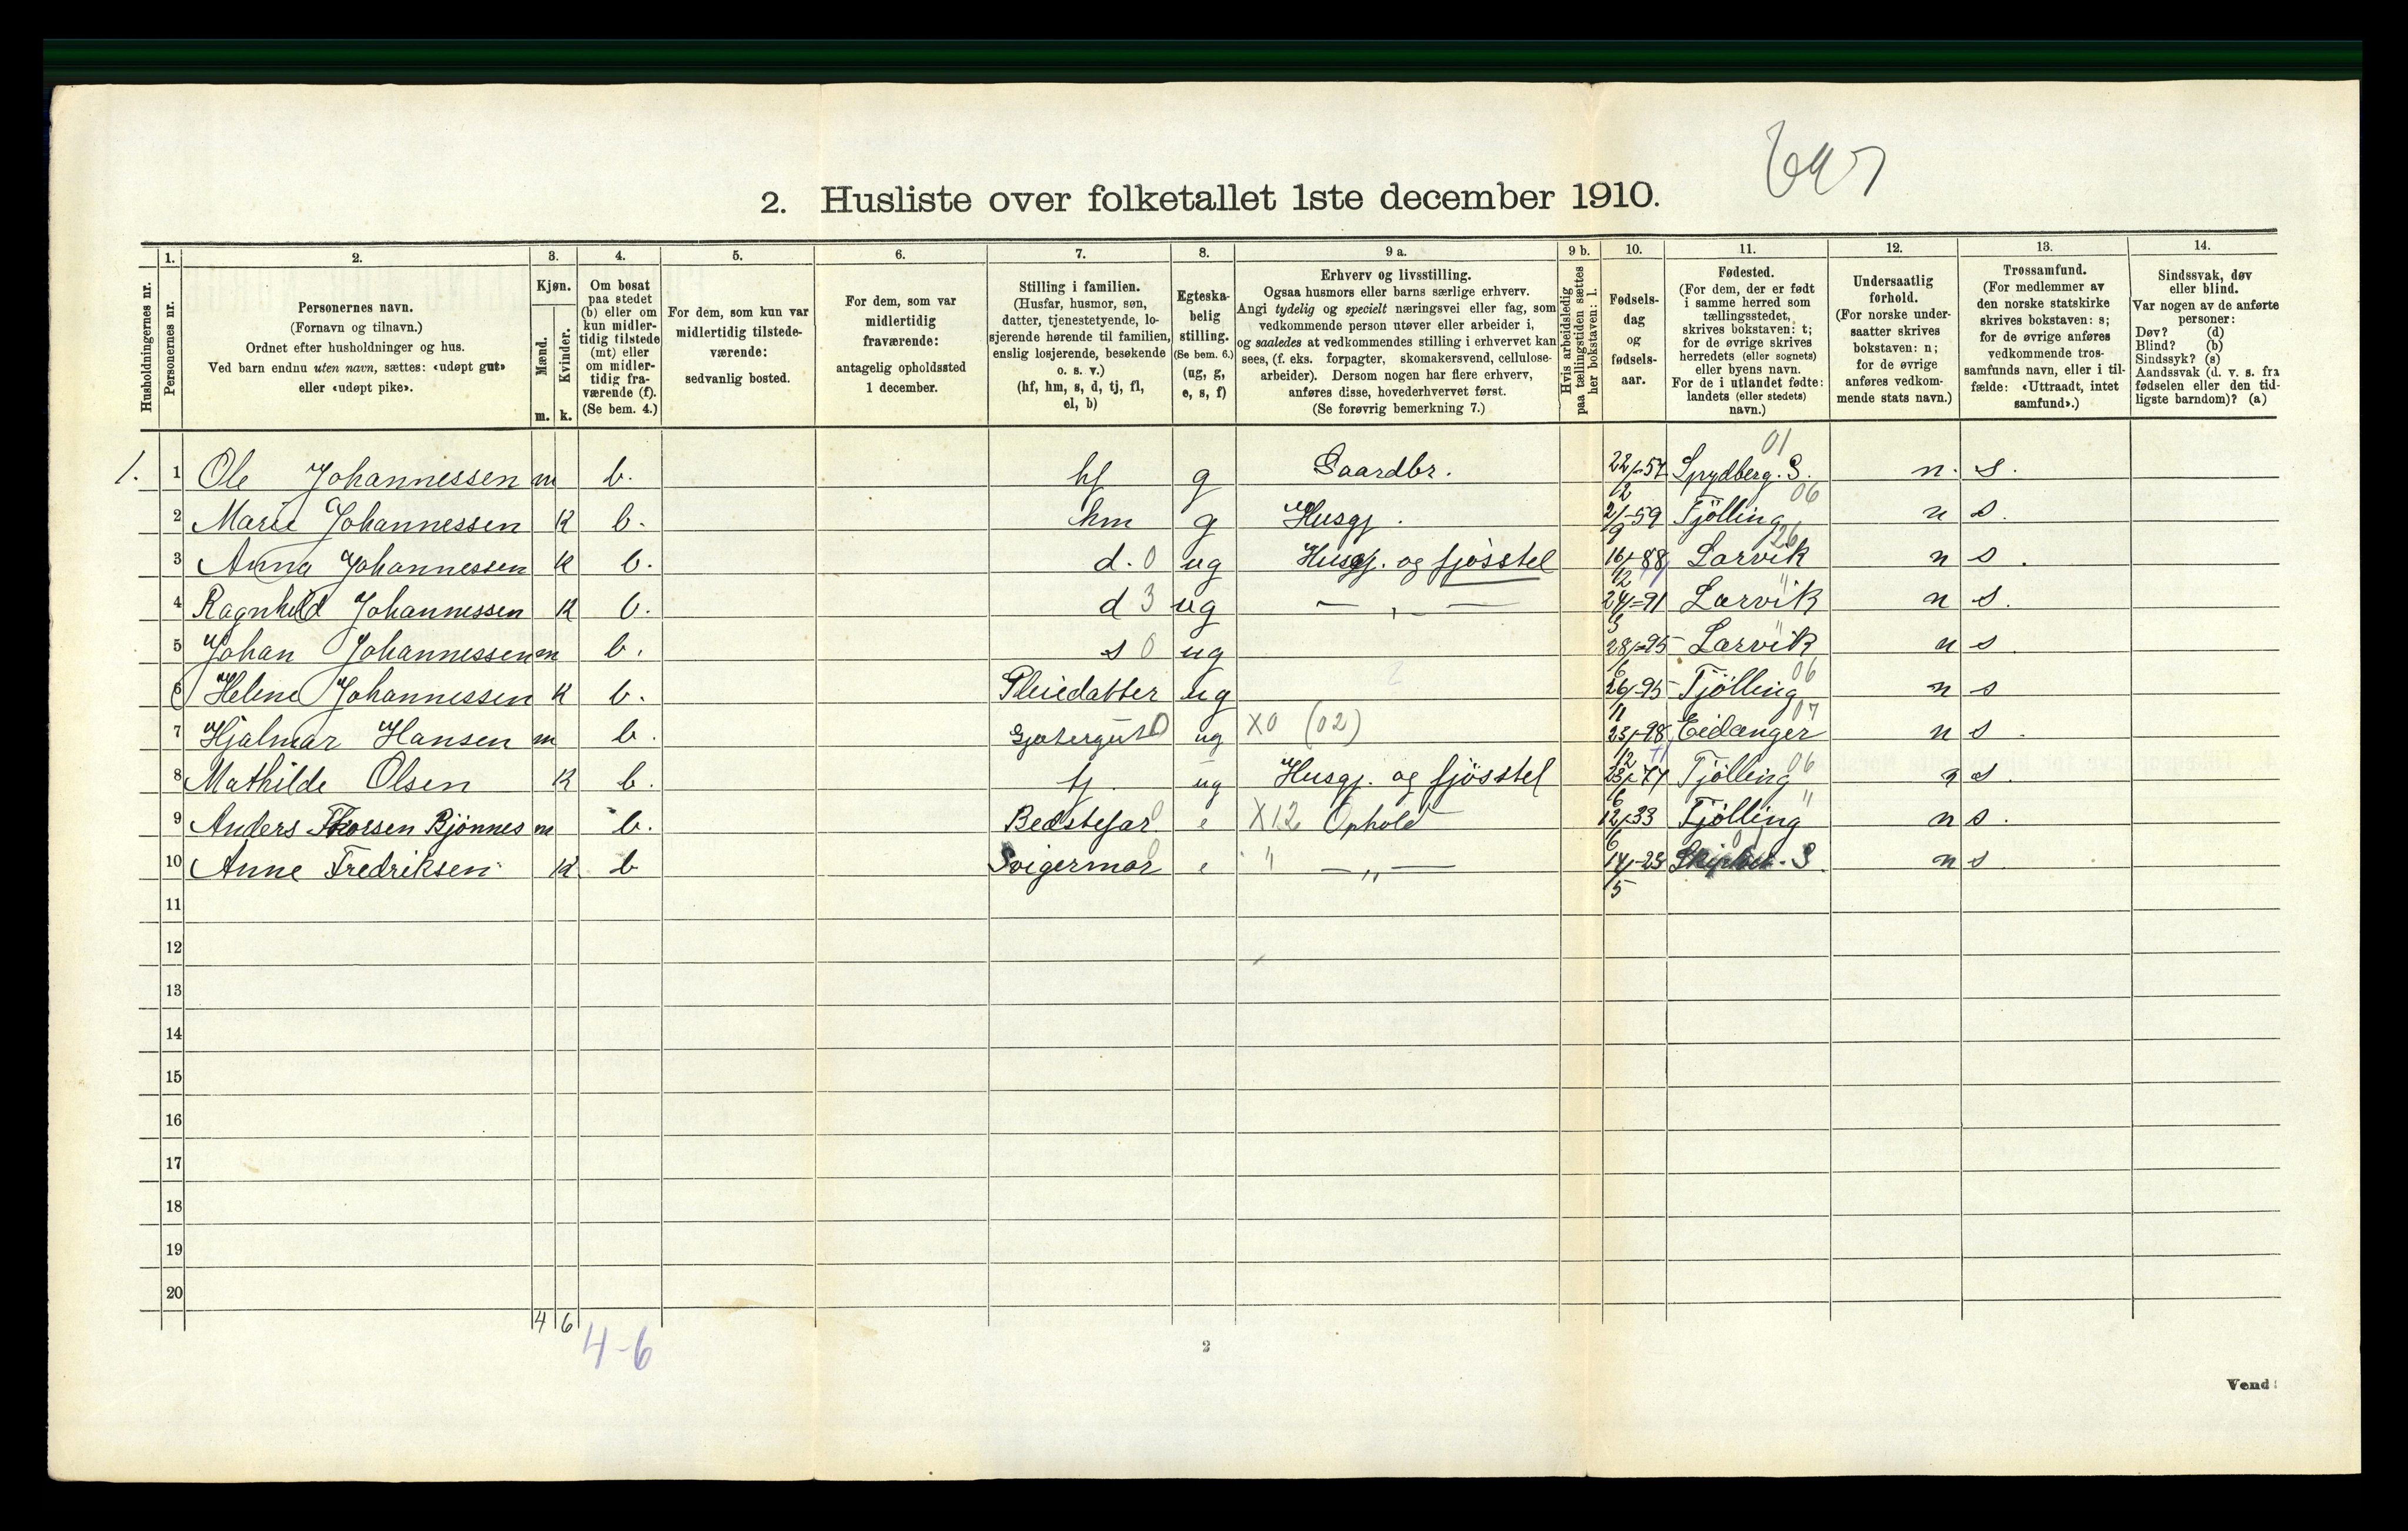 2. Husliste over folketallet 1ste december 1910.
Husholdningernes nr.
1.
Personernes nr.
2.
Personernes navn.
(Fornavn og tilnavn.)
Ordnet efter husholdninger og hus.
Ved barn endnu uten navn, sættes: «udøpt gut»
eller «udøpt pike».
3.
Kjøn.
Mænd.
Kvinder.
m. k.
4.
Om bosat
paa stedet
(b) eller om
kun midler-
tidig tilstede
(mt) eller
om midler-
tidig fra-
værende (f).
(Se bem. 4.)
5.
For dem, som kun var
midlertidig tilstede-
værende:
sedvanlig bosted.
6.
For dem, som var
midlertidig
fraværende:
antagelig opholdssted
1 december.
7.
Stilling i familien.
(Husfar, husmor, søn,
datter, tjenestetyende, lo-
sjerende hørende til familien,
enslig losjerende, besøkende
o. s. v.)
(hf, hm, s, d, tj, fl,
el, b)
8.
Egteska-
belig
stilling.
(Se bem. 6.)
(ug, g,
e, s, f)
9 a.
Erhverv og livsstilling.
Ogsaa husmors eller barns særlige erhverv.
Angi tydelig og specielt næringsvei eller fag, som
vedkommende person utøver eller arbeider i,
og saaledes at vedkommendes stilling i erhvervet kan
sees, (f. eks. forpagter, skomakersvend, cellulose-
arbeider). Dersom nogen har flere erhverv,
anføres disse, hovederhvervet først.
(Se forøvrig bemerkning 7.)
9 b.
Hvis arbeidsledig
paa tællingstiden sættes
her bokstaven: l.
10.
Fødsels-
dag
og
fødsels-
aar.
11.
Fødested.
(For dem, der er født
i samme herred som
tællingsstedet,
skrives bokstaven: t;
for de øvrige skrives
herredets (eller sognets)
eller byens navn.
For de i utlandet fødte:
landets (eller stedets)
navn.)
12.
Undersaatlig
forhold.
(For norske under-
saatter skrives
bokstaven: n;
for de øvrige
anføres vedkom-
mende stats navn.)
13.
Trossamfund.
(For medlemmer av
den norske statskirke
skrives bokstaven: s;
for de øvrige anføres
vedkommende tros-
samfunds navn, eller i til-
fælde: «Uttraadt, intet
samfund».)
14.
Sindssvak, døv
eller blind.
Var nogen av de anførte
personer:
Døv? (d)
Blind? (b)
Sindssyk? (s)
Aandssvak (d. v. s. fra
fødselen eller den tid-
ligste barndom)? (a)
01
1. 1 Ole Johannessen m b. hf g Gaardbr. 22/12-57 Spydberg. S. n. s.
06
2 Marie Johannessen k b. hm g Husgj. 2/9-59 Tjölling n s.
26
3 Anna Johannessen k b. d. 0 ug Husgj. og fjösstel 16/12-88 Larvik n s.
4 Ragnhild Johannessen k b. d 3 ug — „ — 24/3-91 Larvik " n s.
5 Johan Johannessen m b. s 0 ug 28/6-95 Larvik " n s.
06
6 Helene Johannessen k b. Pleiedatter ug 26/11-95 Tjölling n s
07
7 Hjalmar Hansen m b. Gjætergut 0 ug X0 (02) 23/12-98 Eidanger n s.
06
8 Mathilde Olsen k b. tj. ug Husgj. og fjösstel 23/6-77 Tjölling n s.
9 Anders Thorsen Bjönnes m b. Bedstefar 0 e X12 Ophold 12/6-33 Tjölling " n s.
10 Anne Fredriksen k b Svigermor 0 e " — „ — 14/5-23 n s.
11
12
13
14
15
16
17
18
19
20
4 6
4-6
2
Vend!